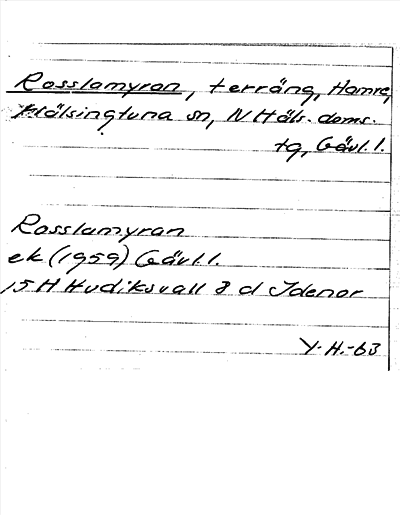 Rosslamyran, terräng, Hamre,
Hälsingtuna sn, N Häls. doms.
tg, Gävl.l.
Rosslamyran
ek (1959) Gävl.l.
15 H Hudiksvall 8 d Idenor
Y. H.-63